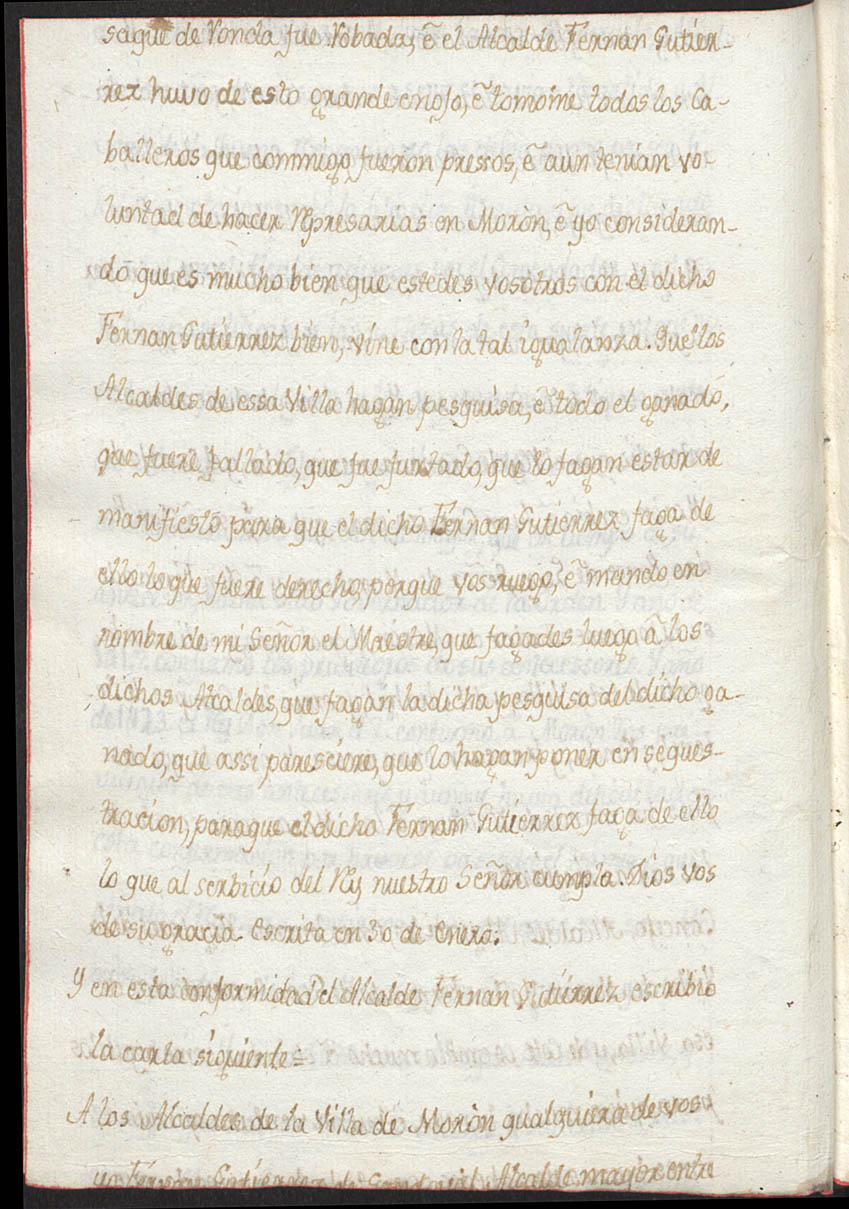 sague de Ronda fue Robada, ẽ el Alcalde Fernan Gutier-
rez huvo de esto grande enojo, ẽ tomóme todos los Ca-
balleros que conmigo fueron pressos, ẽ aun tenian vo-
luntad de hacer Represarias en Moròn, ẽ yo consideran-
do que es mucho bien que estedes vosotros con el dicho
Fernan Gutierrez bien, vine con la tal igualanza. Que los
Alcaldes de essa Villa hagan pesquisa, ẽ todo el ganado,
que fuere fallado, que fue furtado, que lo fagan estar de
manifiesto para que el dicho Fernan Gutierrez faga de
ello lo que fuere derecho, porque vos ruego, ẽ mando en
nombre de mi Señor el Maestre, que fagades luego â los
dichos Alcaldes, que fagan la dicha pesquisa del dicho ga-
nado, que assi paresciere, que lo hagan poner en seques-
tracion, para que el dicho Fernan Gutierrez faga de ello
lo que al serbicio del Rey nuestro Señor cumpla. Dios vos
de su gracia. Escrita en 30 de Enero.
Y en esta conformidad el Alcalde Fernan Gutierrez escribio
la carta siguiente =
A los Alcaldes de la Villa de Moròn qualquiera de vos
yo Fernan Gutierrez de Alcalde mayor entre